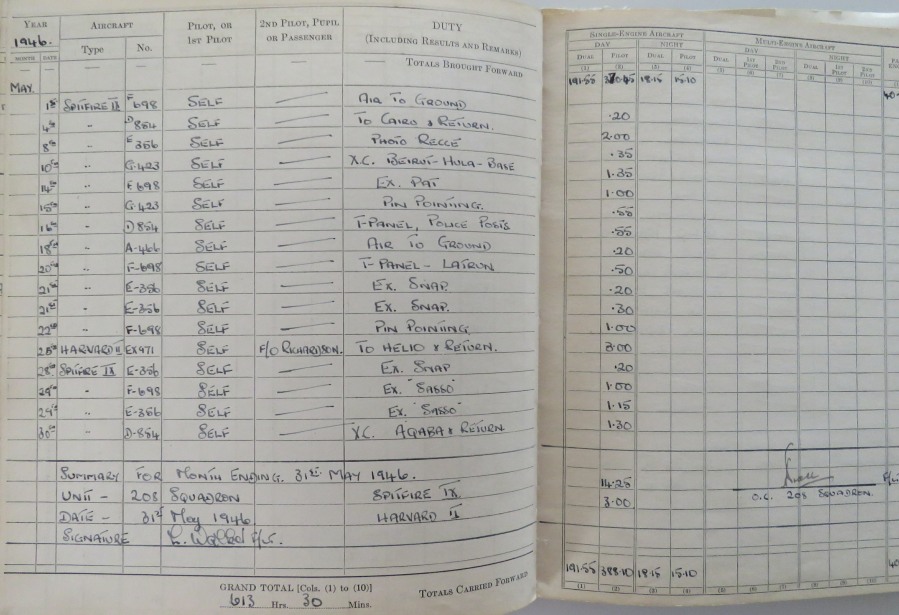 YEAR AIRCRAFT PILOT, OR 2ND PILOT, PUPIL DUTY
1946. Type No. 1ST PILOT OR PASSENGER (INCLUDING RESULTS AND REMARKS)
MONTH DATE
— — — — — — TOTALS BROUGHT FORWARD
MAY.
1st SPITFIRE IX F 698 SELF — AIR TO GROUND
4th " D 854 SELF — TO CAIRO & RETURN.
8th " E 356 SELF — PHOTO RECCE
10th " G.423 SELF — X.C. BEIRUT-HULA-BASE
14th " F 698 SELF — EX. PAT
15th " G.423 SELF — PIN POINTING.
16th " D 854 SELF — T-PANEL, POLICE POSTS
18th " A-466 SELF — AIR TO GROUND
20th " F-698 SELF — T-PANEL - LATRUN
21st " E-356 SELF — EX. SNAP.
21st " E-356 SELF — EX. SNAP.
22nd " F-698 SELF — PIN POINTING
28th HARVARD II EX971 SELF F/O RICHARDSON. TO HELIO & RETURN.
28th SPITFIRE IX E-356 SELF — EX. SNAP
29th " F-698 SELF — EX. "SASSO"
29th " E-356 SELF — EX. "SASSO"
30th " D-854 SELF — X.C. AQABA & RETURN
SUMMARY FOR MONTH ENDING. 31st MAY 1946.
UNIT - 208 SQUADRON SPITFIRE IX
DATE - 31st May 1946 HARVARD II
SIGNATURE F/Lt.
GRAND TOTAL [Cols. (1) to (10)]
613 Hrs. 30 Mins.
TOTALS CARRIED FORWARD
SINGLE-ENGINE AIRCRAFT MULTI-ENGINE AIRCRAFT
DAY NIGHT DAY NIGHT
DUAL PILOT DUAL PILOT DUAL 1ST PILOT 2ND PILOT DUAL 1ST PILOT 2ND PILOT
(1) (2) (3) (4) (5) (6) (7) (8) (9) (10)
191.55 370.45 18.15 15.10
.20
2.00
.35
1.35
1.00
.55
.55
.20
.50
.20
.30
1.00
3.00
.20
1.00
1.15
1.30
14.25
O.C. 208 SQUADRON.
3.00
191.55 388.10 18.15 15.10
(1) (2) (3) (4) (5) (6) (7) (8) (9) (10)